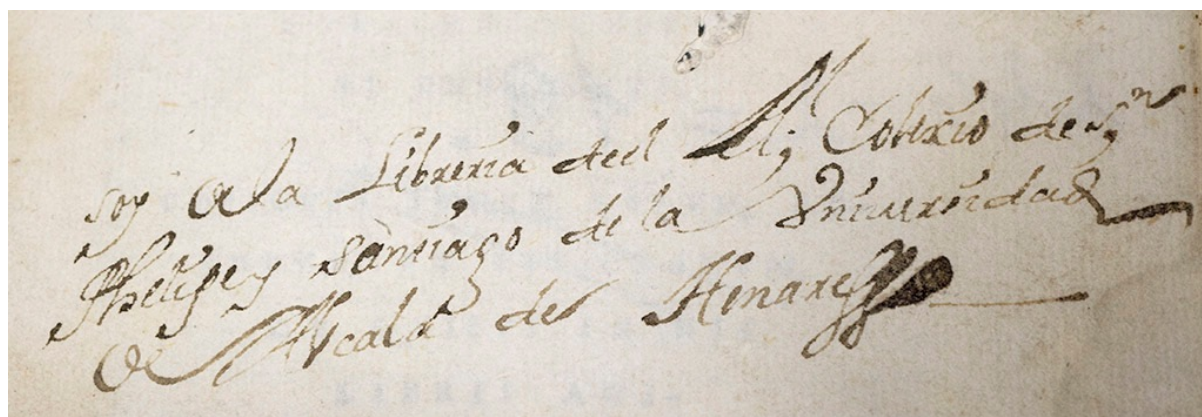 soy de la Libreria deel Rl Colexio de Sn
Phelipe y Santiago de la Vniuersidad
de Alcala de Henares